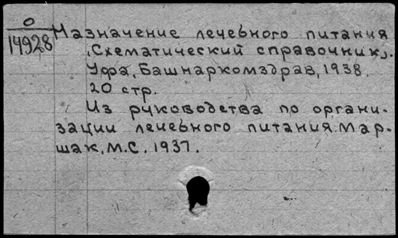 О
14928
Назначение лечебного питания
(Схематический справочник).
Уфа, Башнаркомздрав, 1938.
20 стр.
Из руководства по органи-
зации лечебного питания. Мар-
шак, М.С. 1937.